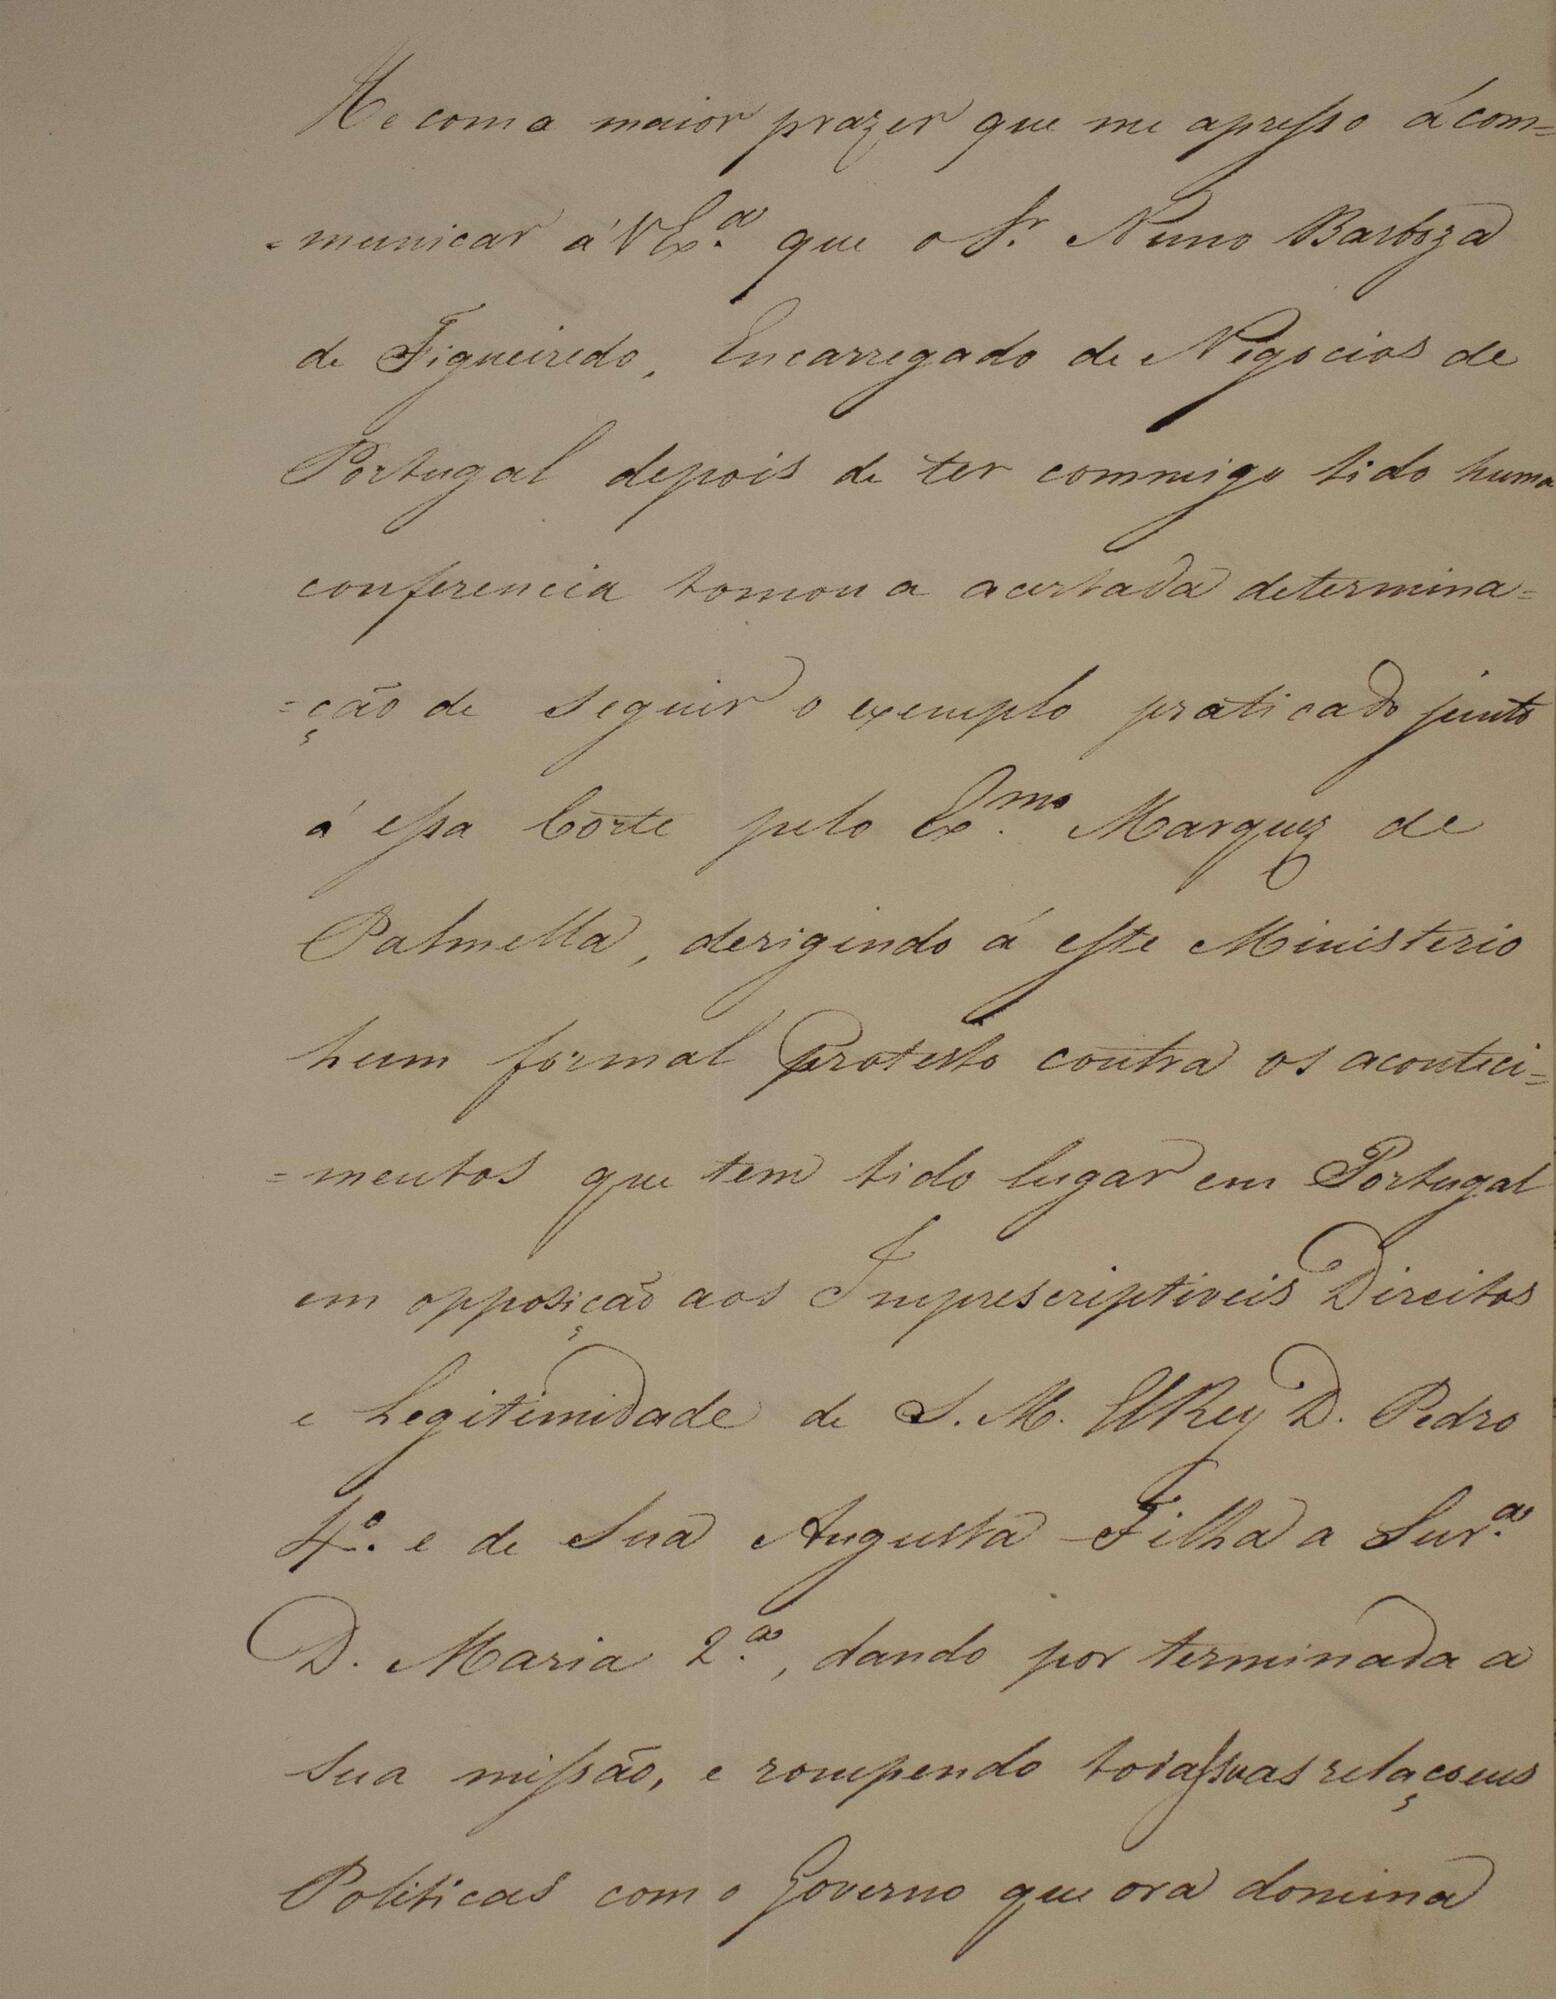 He com a maior prazer que me apresso á com=
=municar á V Ex.ª que o Sr. Nuno Barboza
de Figueiredo, Encarregado de Negocios de
Portugal depois de ter commigo tido huma
conferencia tomou a acertada determina=
=ção de seguir o exemplo praticado junto
á essa Côrte pelo Ex.mo Marquez de
Palmella, derigindo á este Ministerio
hum formal Protesto contra os aconteci=
=mentos que tem tido lugar em Portugal
em opposição aos Imprescriptiveis Direitos
e Legitimidade de S. M. ElRey D. Pedro
4.º e de Sua Augusta Filha a Snr.ª
D. Maria 2.ª, dando por terminada a
sua missão, e rompendo todas suas relaçoens
Politicas com o Governo que ora domina